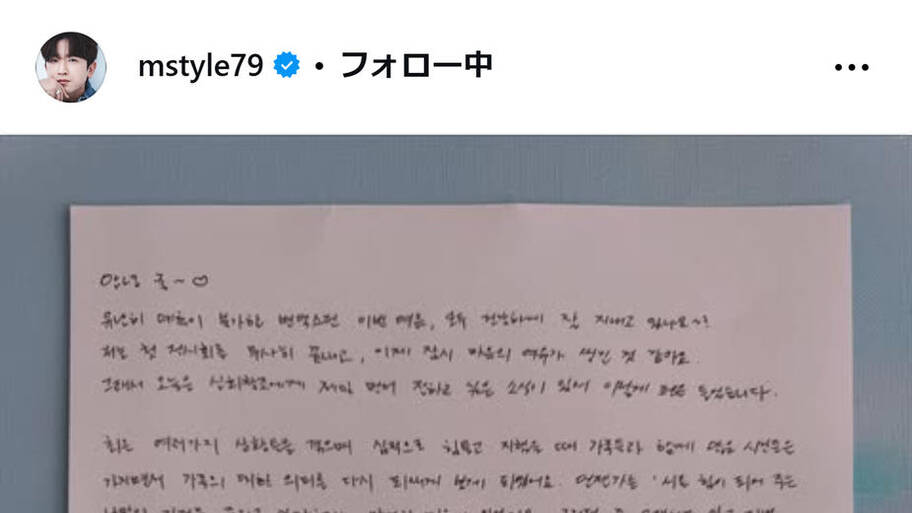 mstyle79 • フォロー中
안녀 줄~♡
유난히 변덕스런 이번 여름, 모두 건강하게 잘 지내고 있나요~?
저는 첫 전시회를 무사히 끝내고, 이제 잠시 마음의 여유가 생긴 것 같아요.
그래서 오늘은 신화창조에게 제일 먼저 전하고 싶은 소식이 있어 이렇게 펜을 들었습니다.
최근 여러가지 상황들을 겪으며 심적으로 힘들고 지쳤을 때 가족들과 함께 많은 시간들을
가지면서 가족의 대한 의미를 다시 되새기게 되었어요. 언젠가는 '서로 힘이 되어 주는